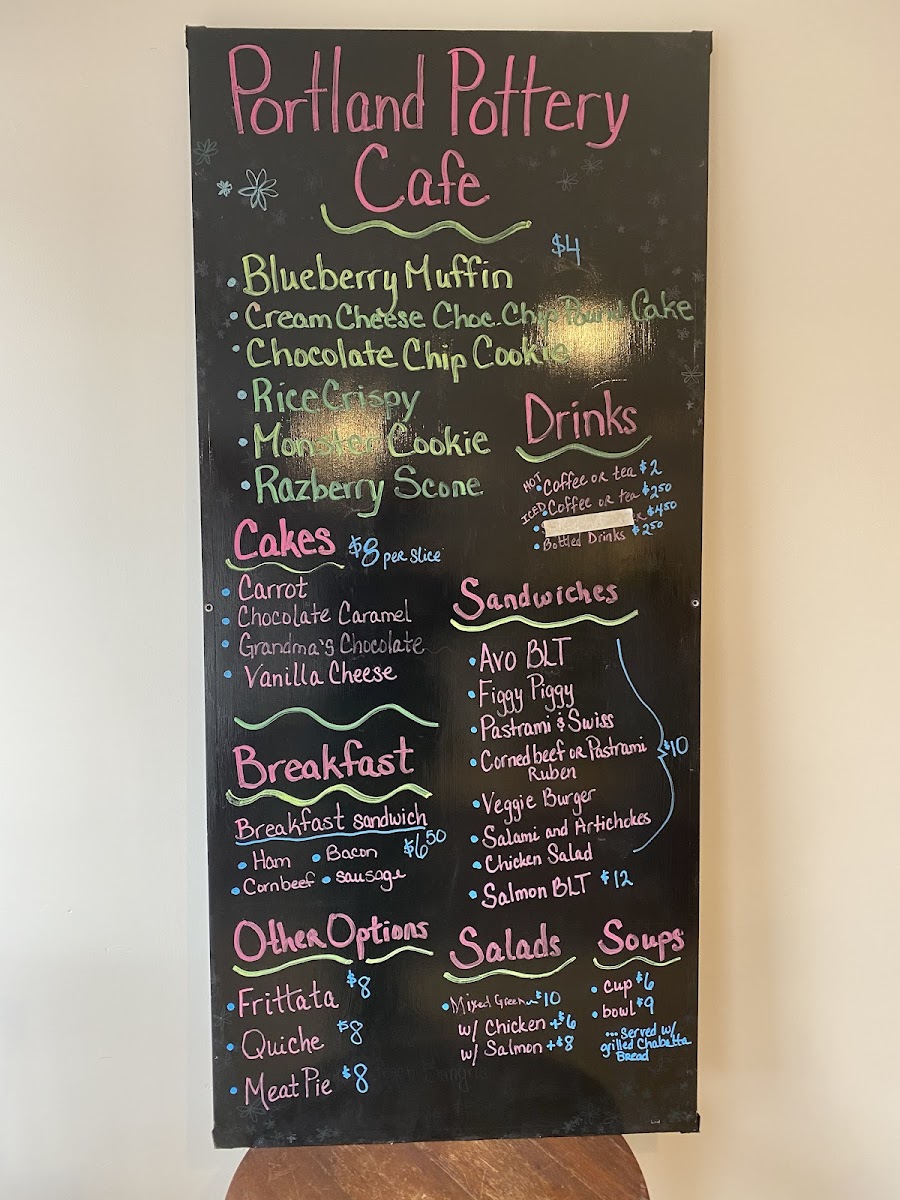 Portland Pottery
Cafe
$4
• Blueberry Muffin
• Cream Cheese Choc. Chip Pound Cake
• Chocolate Chip Cookie
• Rice Crispy
• Monster Cookie
• Razberry Scone
Drinks
HOT • Coffee or tea $2
ICED • Coffee or tea $2.50
$4.50
• Bottled Drinks $2.50
Cakes $8 per slice
• Carrot
• Chocolate Caramel
• Grandma's Chocolate
• Vanilla Cheese
Sandwiches
• Avo BLT
• Figgy Piggy
• Pastrami & Swiss
• Corned beef or Pastrami
Ruben
• Veggie Burger
• Salami and Artichokes
• Chicken Salad
$10
• Salmon BLT $12
Breakfast
Breakfast sandwich
$6.50
• Ham • Bacon
• Cornbeef • sausage
Other Options
• Frittata $8
• Quiche $8
• Meat Pie $8
Salads
• Mixed Green $10
w/ Chicken +$6
w/ Salmon +$8
Soups
• cup $6
• bowl $9
...Served w/
grilled Chabatta
Bread